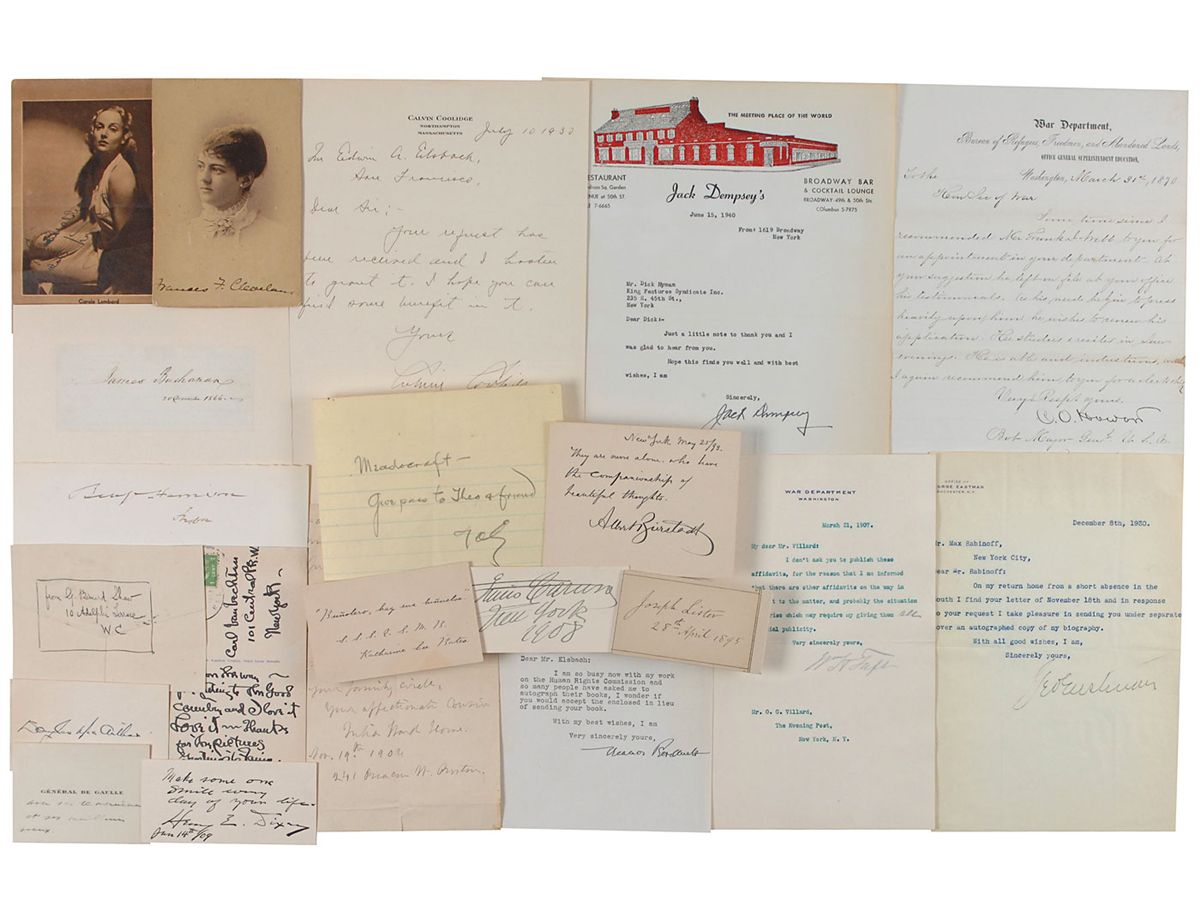 Carole Lombard
Frances F. Cleveland
CALVIN COOLIDGE
NORTHAMPTON
MASSACHUSETTS
July 10 1933
Mr Edwin A. Elsbach,
San Francisco,
Dear Sir;-
Your request has
been received and I hasten
to grant it. I hope you can
find some benefit in it.
Yours
Calvin Coolidge
THE MEETING PLACE OF THE WORLD
ESTAURANT
BROADWAY BAR
& COCKTAIL LOUNGE
BROADWAY-49th & 50th Sts.
COlumbus 5-7875
Sq. Garden
NUE at 50th ST.
7-6665
Jack Dempsey's
June 15, 1960
From: 1619 Broadway
New York
Mr. Dick Hyman
King Features Syndicate Inc.
235 E. 45th St.,
New York
Dear Dick:-
Just a little note to thank you and I
was glad to hear from you.
Hope this finds you well and with best
wishes, I am
Sincerely,
Jack Dempsey
War Department,
Bureau of Refugees, Freedmen, and Abandoned Lands,
OFFICE GENERAL SUPERINTENDENT EDUCATION,
Washington, March 31st, 1870
To the
Hon Sec of War
Some time since I
recommended Mr. Frank J. Webb to you for
an appointment in your department. At
your suggestion he left on file at your office
his testimonials. As his need begins to press
heavily upon him he wishes to renew his
application. He studies & recites in law
evenings. He is able and industrious, and
I again recommend him to you for a clerkship
Very Respt. yours,
O. O. Howard
Bvt Major Genl. U. S. A.
James Buchanan
1866
Benj Harrison
Meadowcraft—
Give pass to Theo & friend
New York May 25/93.
They are never alone who have
the companionship of
beautiful thoughts.
Albert Bierstadt
WAR DEPARTMENT
WASHINGTON
March 21, 1907.
My dear Mr. Villard:
I don't ask you to publish these
affidavits, for the reason that I am informed
that there are other affidavits on the way in
t to the matter, and probably the situation
ries which may require my giving them all
ial publicity.
Very sincerely yours,
Wm H Taft
Mr. O. G. Villard,
The Evening Post,
New York, N. Y.
OFFICE OF
ORGE EASTMAN
ROCHESTER, N.Y.
December 8th, 1930.
Mr. Max Rabinoff,
New York City,
Dear Mr. Rabinoff:
On my return home from a short absence in the
South I find your letter of November 18th and in response
to your request I take pleasure in sending you under separate
cover an autographed copy of my biography.
With all good wishes, I am,
Sincerely yours,
Geo Eastman
from G. Bernard Shaw
10 Adelphi Terrace
W.C
Carl Van Vechten
101 Central Pk. W.
New York
Country and I love it
Love it Thanks
for the pictures
"Buñuelos, hay sus buñuelos"
Katharine Lee Bates
Enrico Caruso
New York
1908
Joseph Lister
28th April 1895
your family circle,
Your affectionate Cousin
Julia Ward Howe.
Nov. 19th 1904
241 Beacon St. Boston.
Dear Mr. Elsbach:
I am so busy now with my work
on the Human Rights Commission and
so many people have asked me to
autograph their books, I wonder if
you would accept the enclosed in lieu
of sending your book.
With my best wishes, I am
Very sincerely yours,
Eleanor Roosevelt
Douglas MacArthur
GÉNÉRAL DE GAULLE
Make some one
smile every
day of your life.
Henry E. Dixey
Jan 14th/09